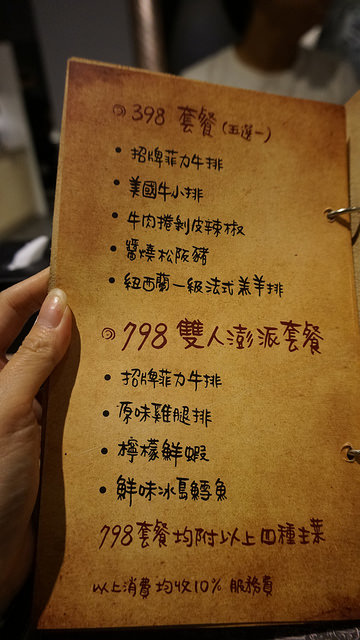 ◎398 套餐 (五選一)
• 招牌菲力牛排
• 美國牛小排
• 牛肉捲剝皮辣椒
• 醬燒松阪豬
• 紐西蘭一級法式羔羊排
◎798 雙人澎派套餐
• 招牌菲力牛排
• 原味雞腿排
• 檸檬鮮蝦
• 鮮味冰島鱈魚
798套餐均附以上四種主菜
以上消費均收10% 服務費